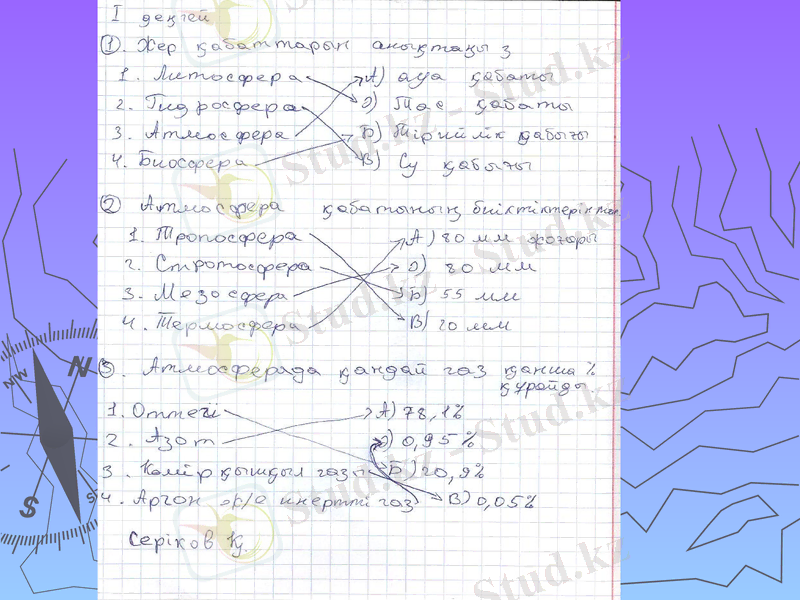 I деңгей
1. Жер қабаттарын анықтаңыз
1. Литосфера А) ауа қабаты
2. Гидросфера Ә) Тас қабаты
3. Атмосфера Б) Тіршілік қабығы
4. Биосфера В) Су қабығы
2 Атмосфера қабатының биіктіктерін тап.
1. Тропосфера А) 80 мм жоғары
2. Стротосфера Ә) 80 мм
3. Мезосфера Б) 55 мм
4. Термосфера В) 20 мм
3. Атмосферада қандай газ қанша %
құрайды.
1. Оттегі А) 78,1%
2. Азот Ә) 0,95%
3. Көмір қышқыл газы Б) 20,9%
4. Аргон ж/е инертті газ В) 0,05%
Серіков Қ.
N
NW
S
S
Stud.kz - Stud.kz
Stud.kz - Stud.kz
Stud.kz - Stud.kz
Stud.kz - Stud.kz